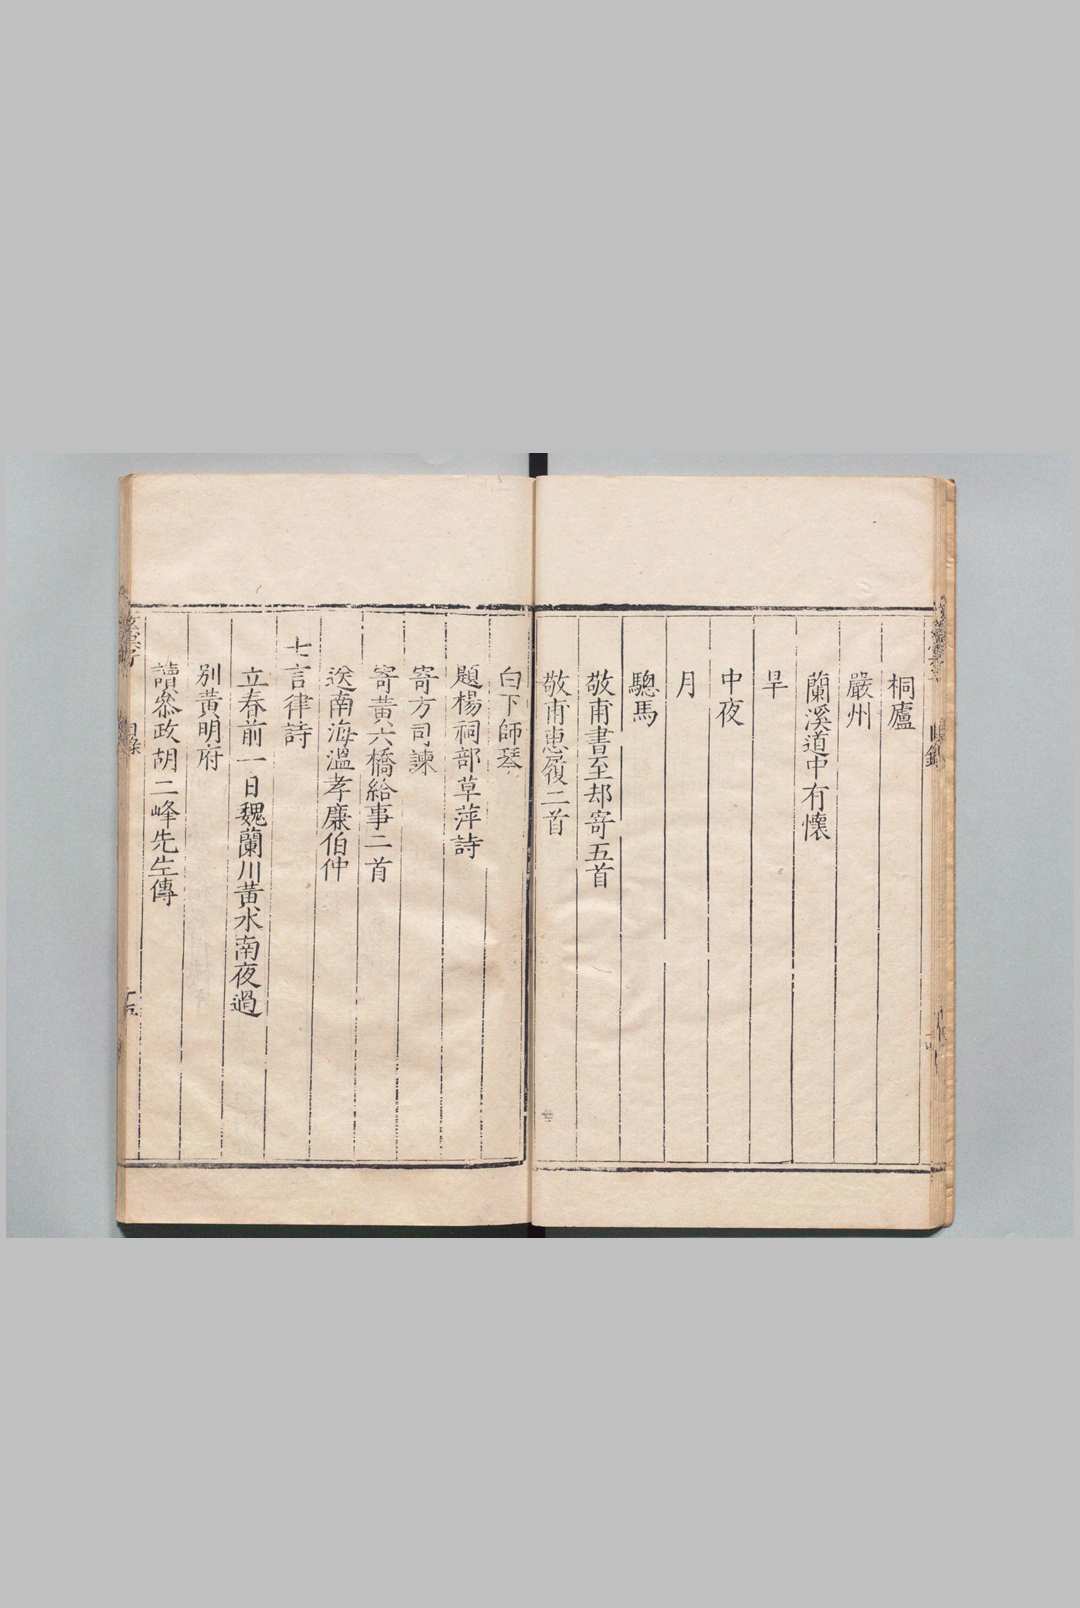 桐廬
嚴州
蘭溪道中有懷
旱
中夜
月
驄馬
敬甫書至却寄五首
敬甫惠履二首
白下師琴
題楊祠部草萍詩
寄方司諫
寄黃六橋給事二首
送南海溫孝廉伯仲
七言律詩
立春前一日魏蘭川黃水南夜過
別黃明府
讀叅政胡二峰先生傳
目錄